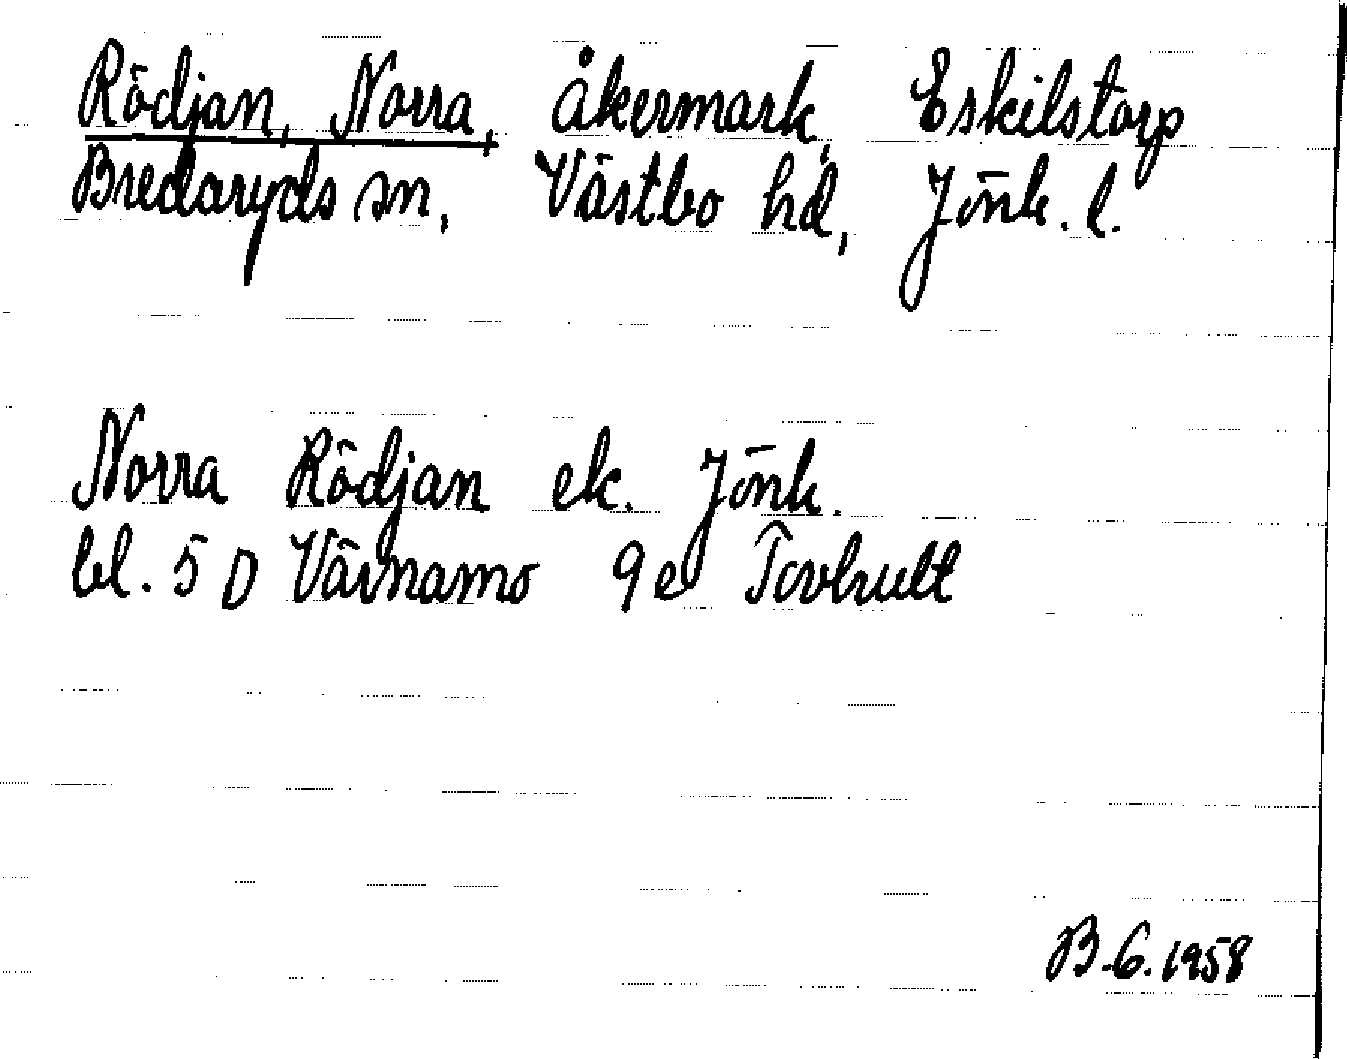 Rödjan, Norra, åkermark, Eskilstorp
Bredaryds sn, Västbo hd, Jönk. l.
Norra Rödjan ek. Jönk.
bl. 5 D Värnamo 9 e Tovhult
B.G. 1958